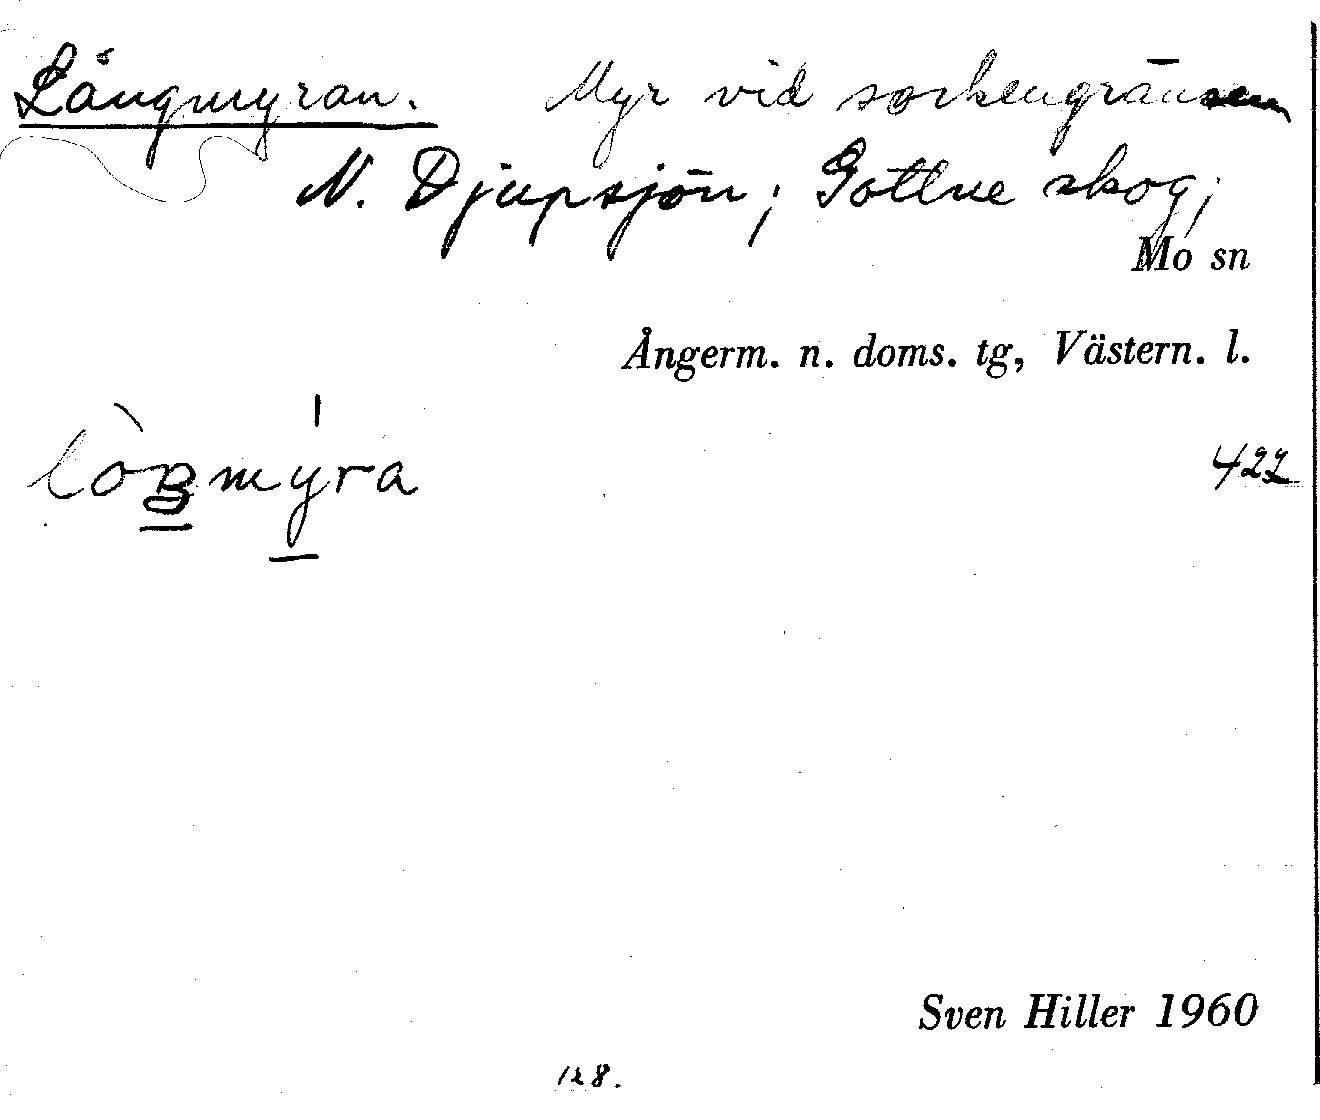 Långmyran. Myr vid sockengränsen
N. Djupsjön; Gottne skog;
Mo sn
Ångerm. n. doms. tg, Västern. l.
427
Sven Hiller 1960
128.